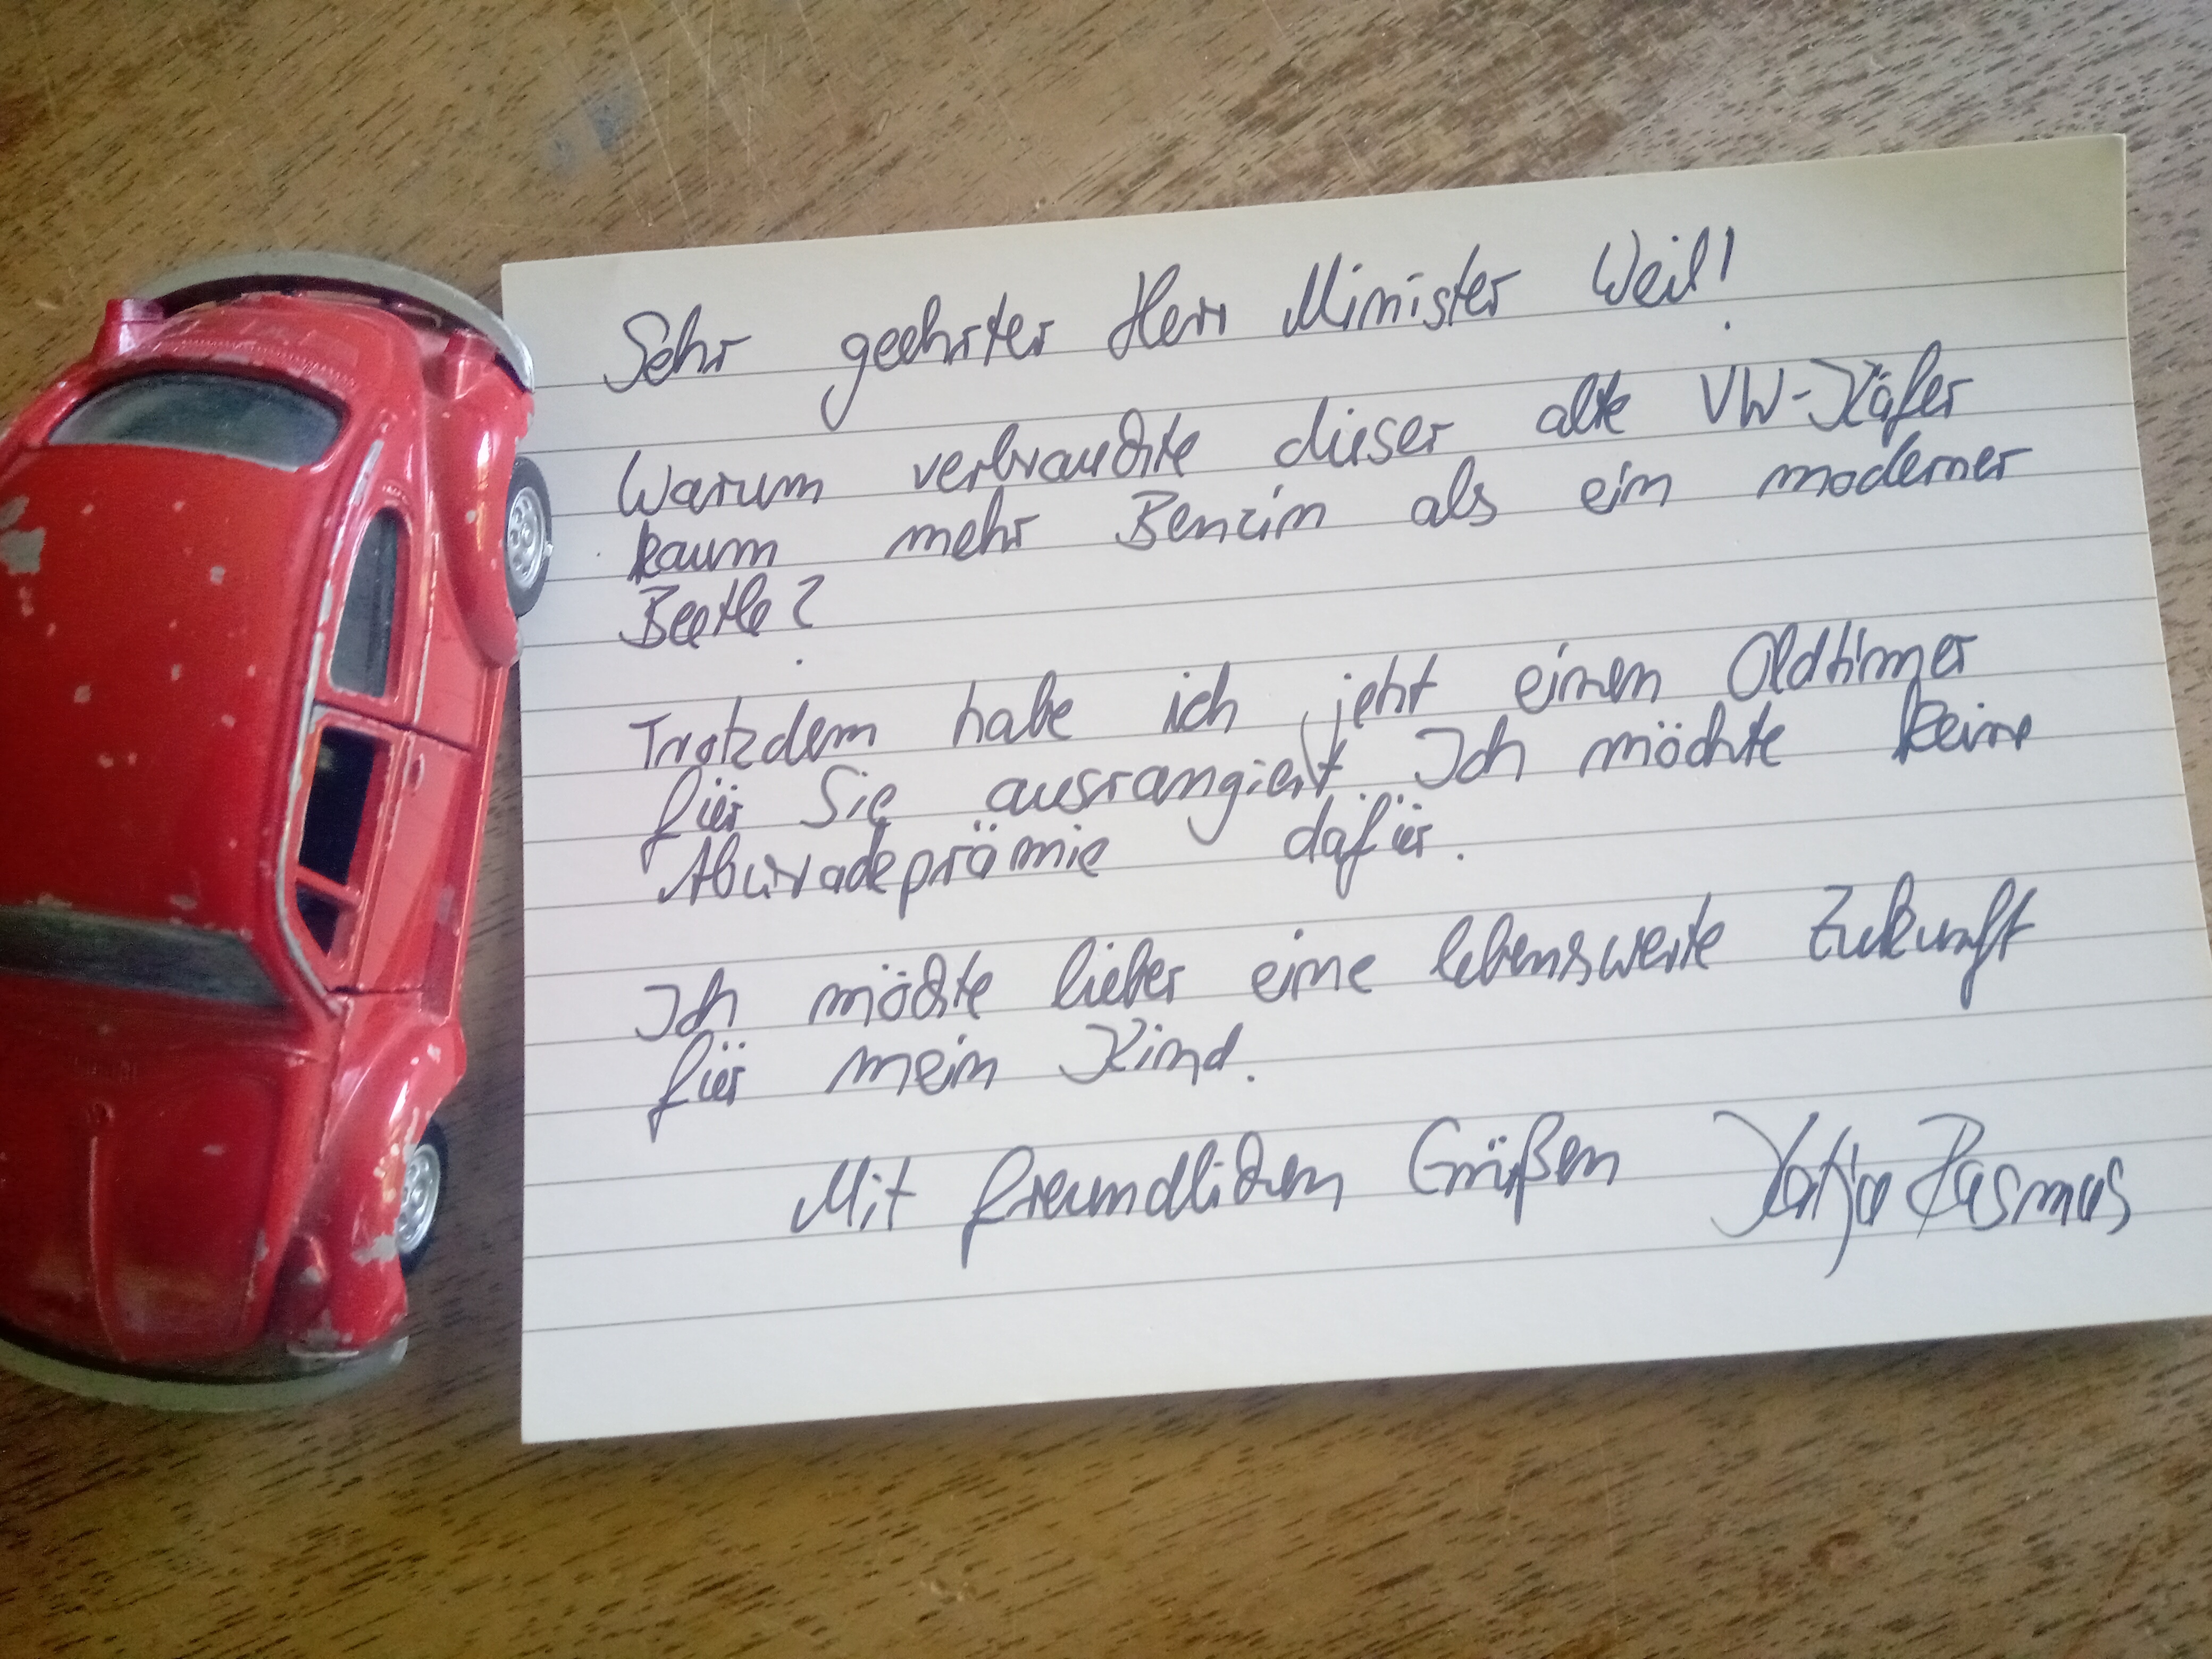 Sehr geehrter Herr Minister Weil!
Warum verbrauchte dieser alte VW-Käfer
kaum mehr Benzin als ein moderner
Beetle?
Trotzdem habe ich jetzt einen Oldtimer
für Sie ausrangiert. Ich möchte keine
Abwradeprämie dafür.
Ich möchte lieber eine lebenswerte Zukunft
für mein Kind.
Mit freundlichen Grüßen Katja Rasmus